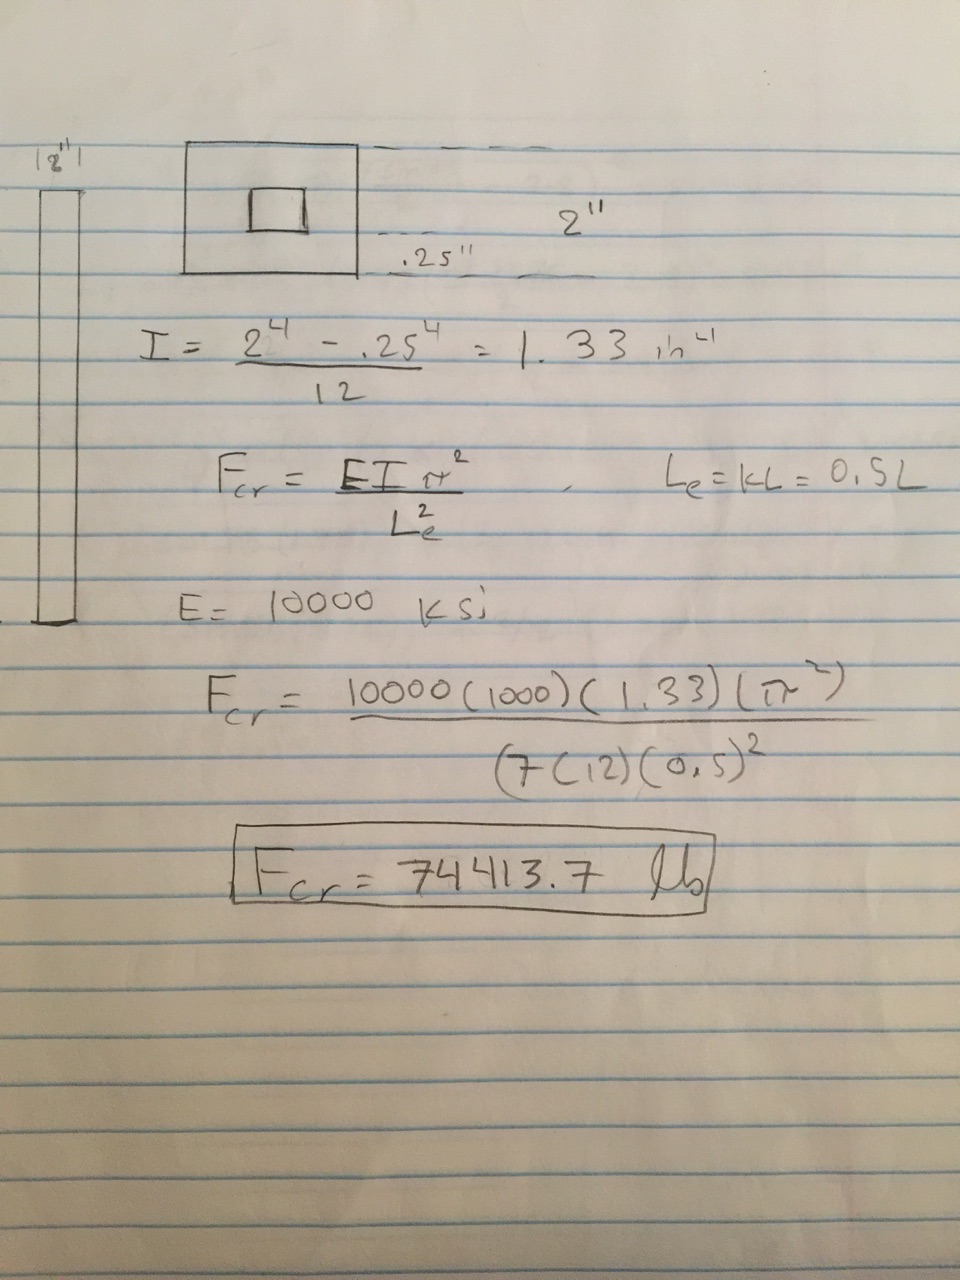 |2"|
2"
.25"
I = 2⁴ - .25⁴ / 12 = 1.33 in⁴
Fcr = EIπ² / Le² , Le = KL = 0.5L
E = 10000 Ksi
Fcr = 10000(1000)(1.33)(π²) / (7(12)(0.5)²
Fcr = 74413.7 lb